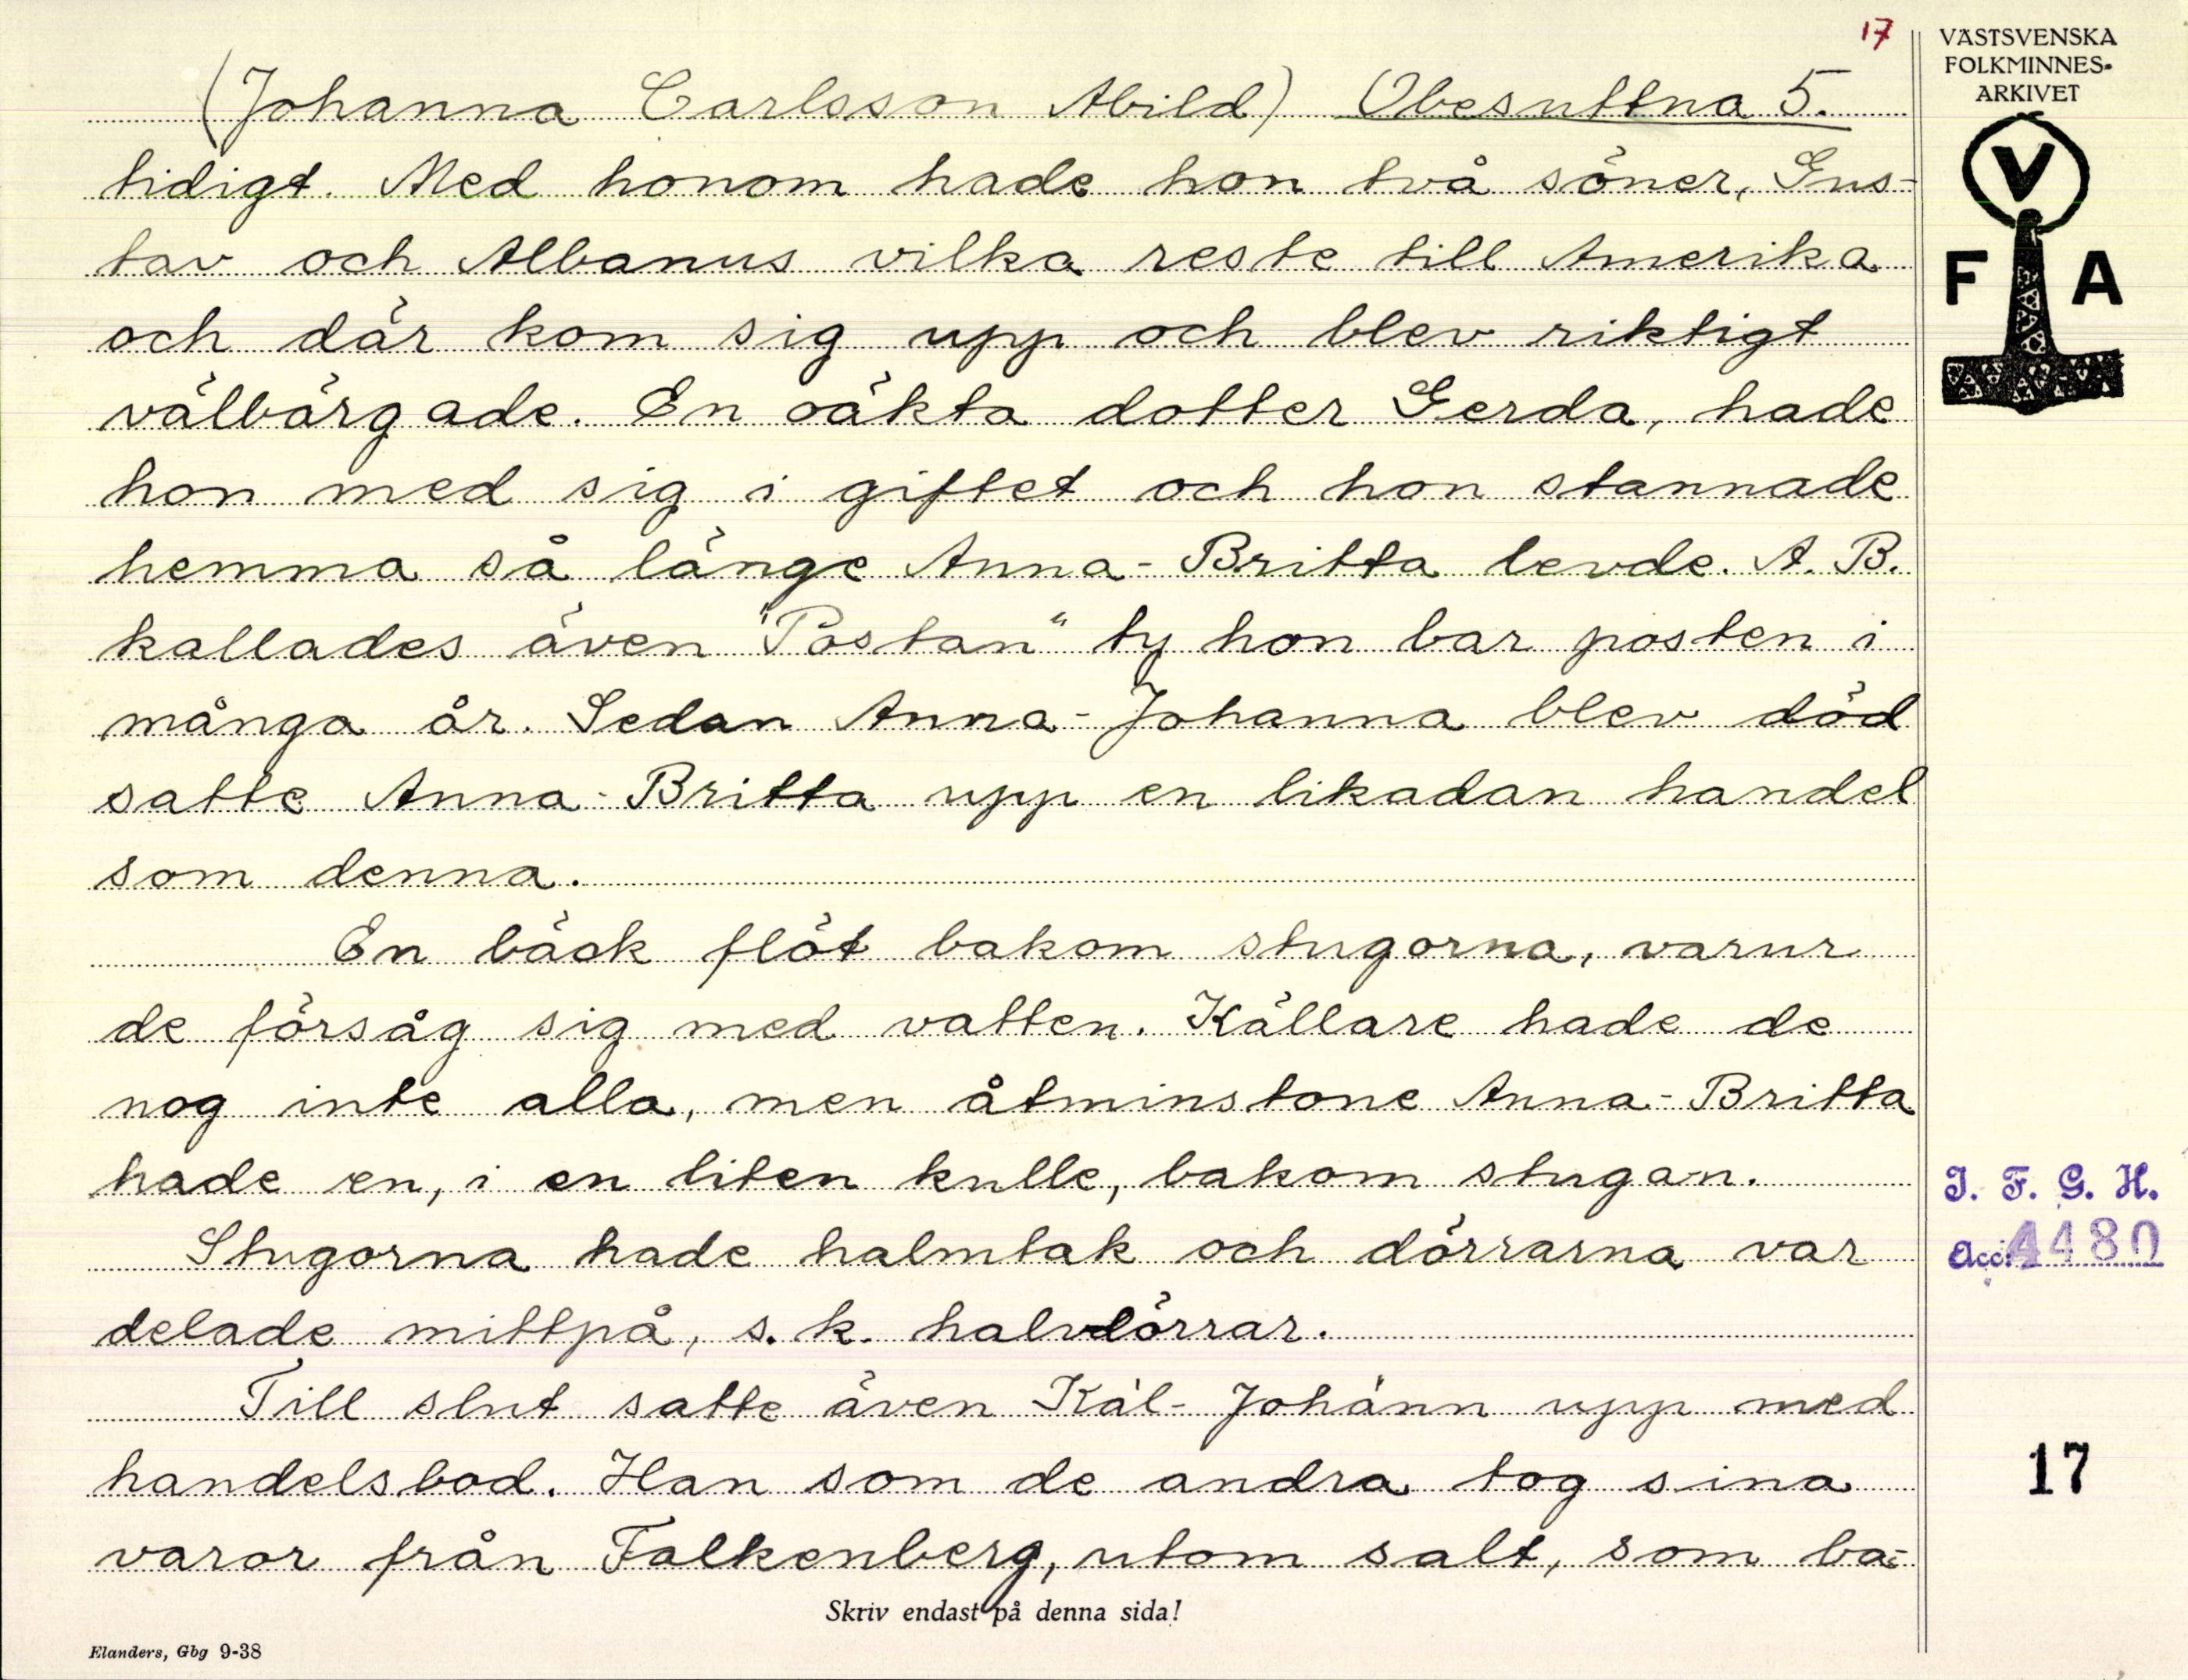 17
VÄSTSVENSKA
FOLKMINNES-
ARKIVET
V
F A
(Johanna Carlsson Abild) Obesuttna 5.
tidigt. Med honom hade hon två söner, Gus-
tav och Albanus vilka reste till Amerika
och där kom sig upp och blev riktigt
välbärgade. En oäkta dotter Gerda, hade
hon med sig i giftet och hon stannade
hemma så länge Anna-Britta levde. A. B.
kallades även "Postan" ty hon bar posten i
många år. Sedan Anna-Johanna blev död
satte Anna-Britta upp en likadan handel
som denna.
En bäck flöt bakom stugorna, varur
de försåg sig med vatten. Källare hade de
nog inte alla, men åtminstone Anna-Britta
hade en, i en liten kulle, bakom stugan.
Stugorna hade halmtak och dörrarna var
delade mittpå, s. k. halvdörrar.
Till slut satte även Kál-Johánn upp med
handelsbod. Han som de andra tog sina
varor från Falkenberg, utom salt, som ba-
I. F. G. H.
Acc. 4480
17
Skriv endast på denna sida!
Elanders, Gbg 9-38